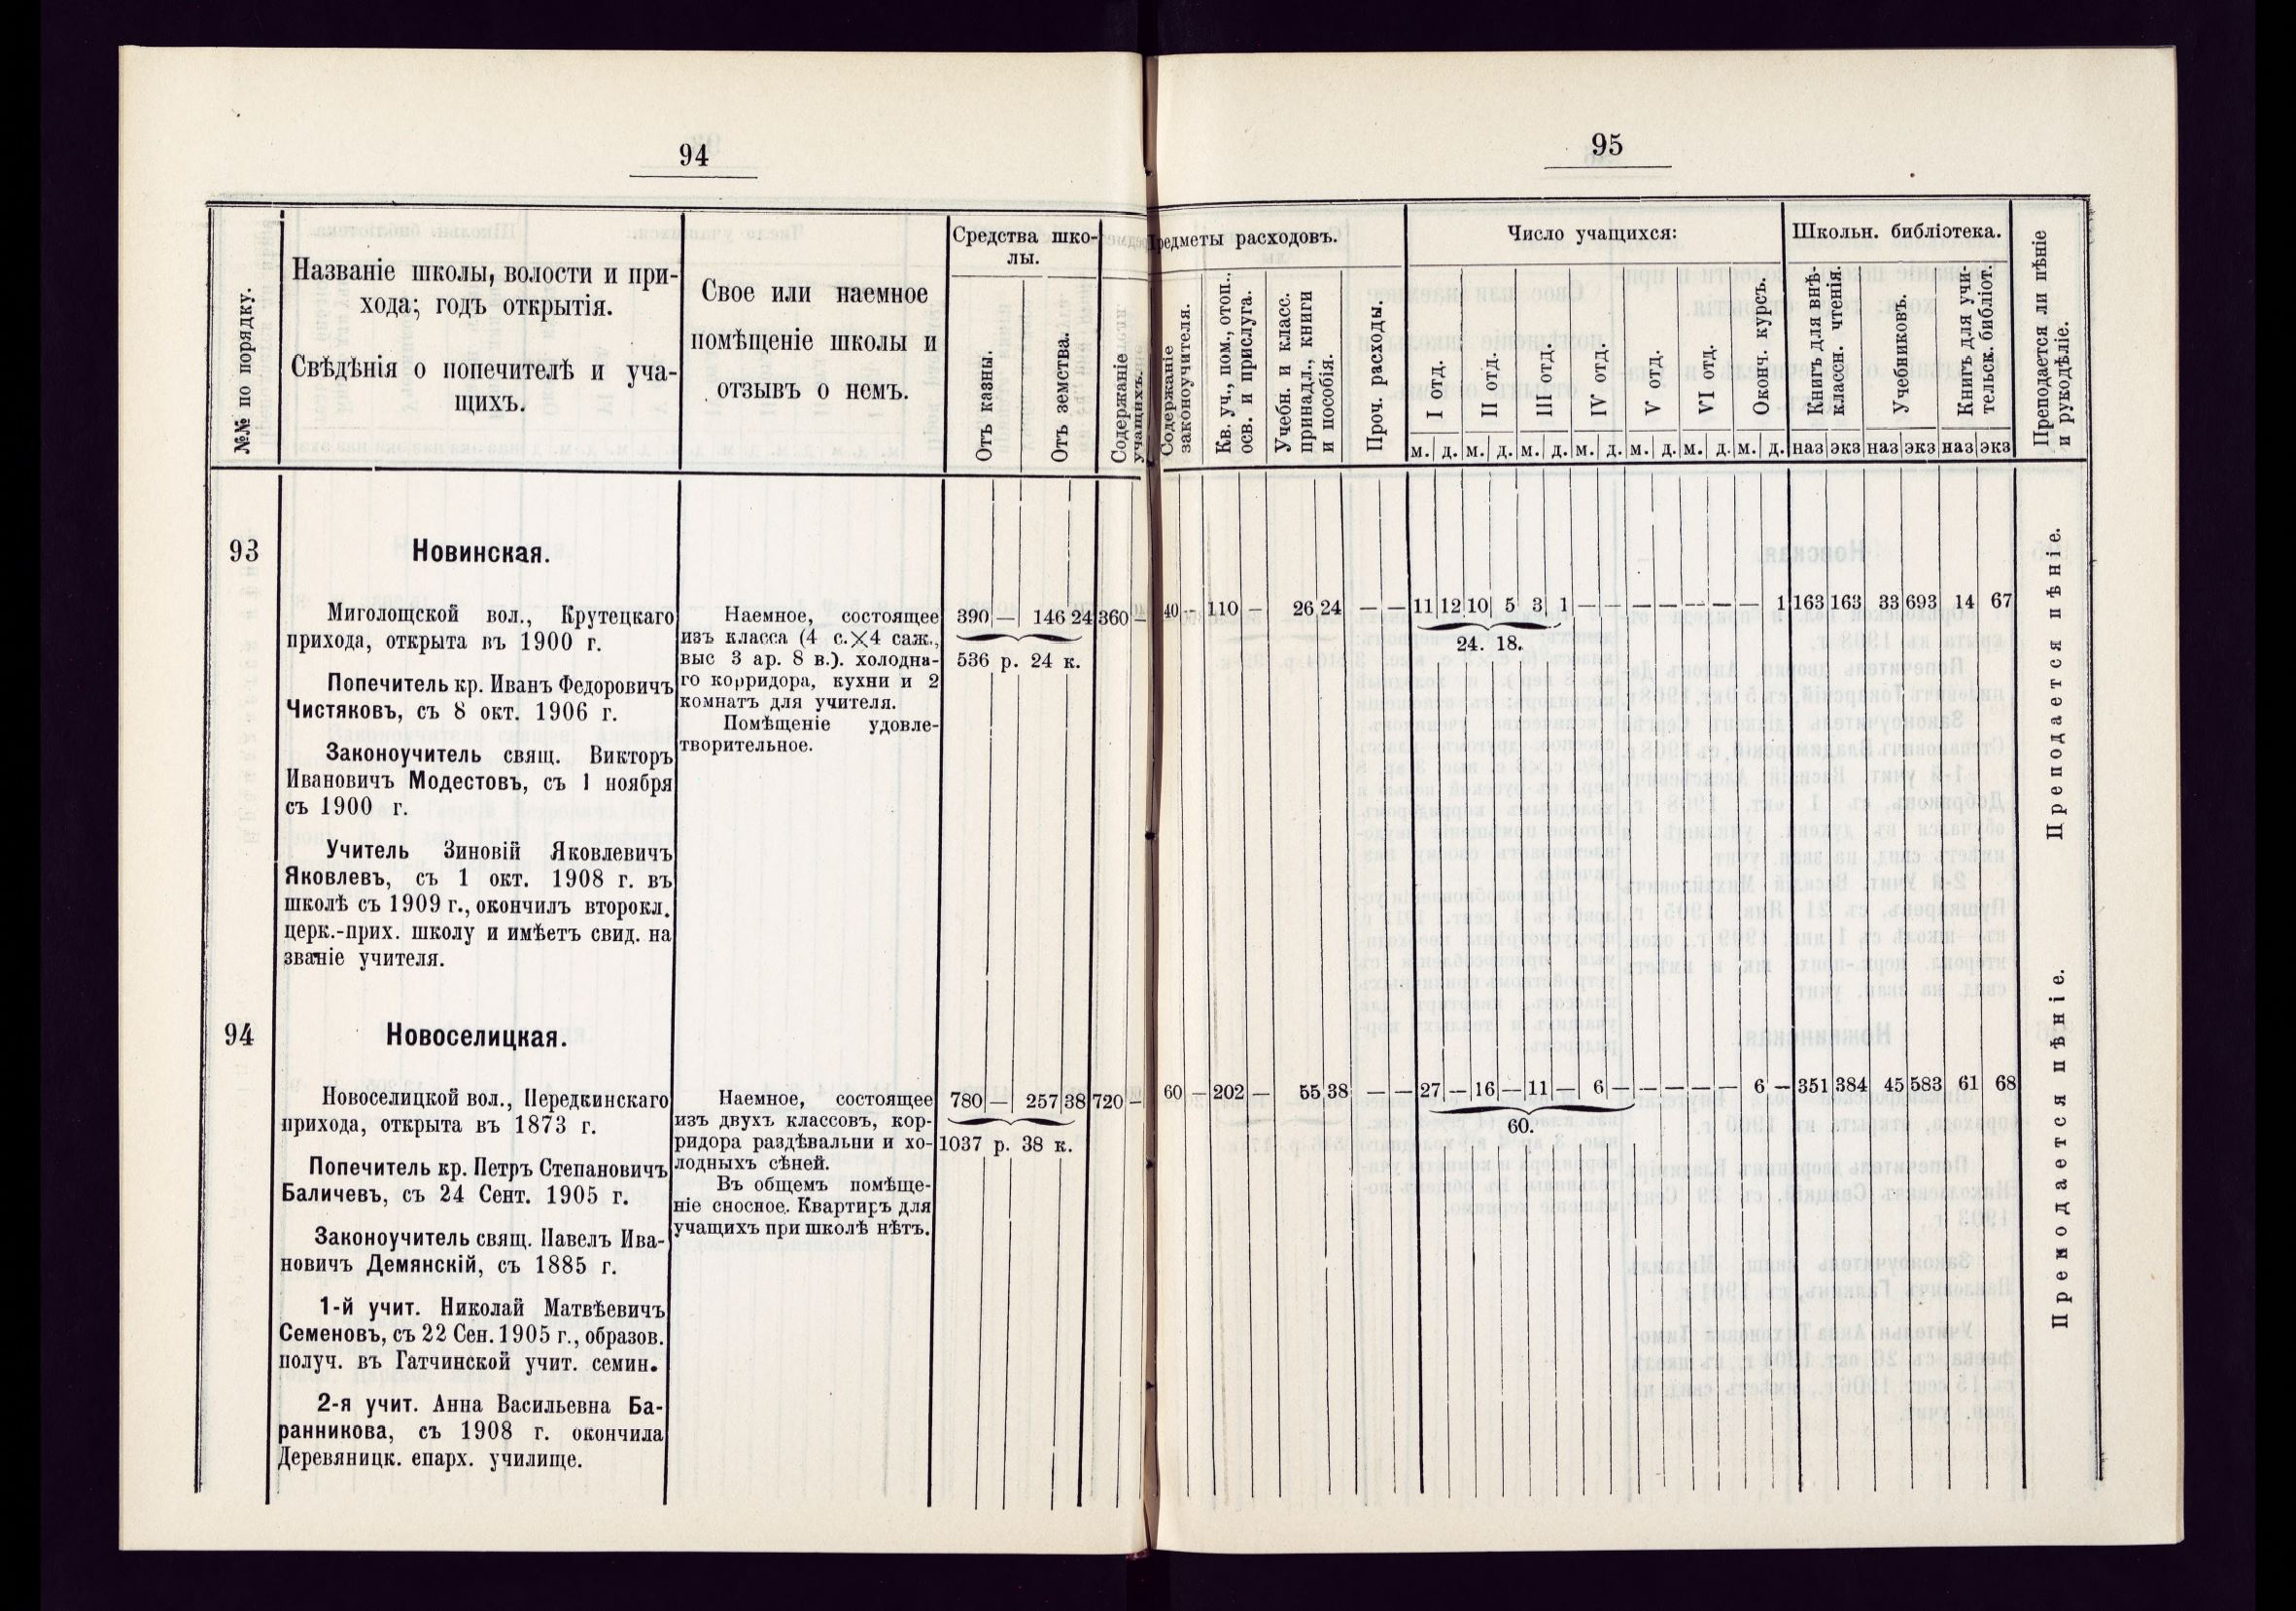 94
№№ по порядку.
Названіе школы, волости и при-
хода; годъ открытія.
Свѣдѣнія о попечителѣ и уча-
щихъ.
Свое или наемное
помѣщеніе школы и
отзывъ о немъ.
Средства шко-
лы.
Отъ казны.
Отъ земства.
Содержаніе
учащихъ.
93
Новинская.
Миголощской вол., Крутецкаго
прихода, открыта въ 1900 г.
Попечитель кр. Иванъ Федоровичъ
Чистяковъ, съ 8 окт. 1906 г.
Законоучитель свящ. Викторъ
Ивановичъ Модестовъ, съ 1 ноября
съ 1900 г.
Учитель Зиновій Яковлевичъ
Яковлевъ, съ 1 окт. 1908 г. въ
школѣ съ 1909 г., окончилъ второкл.
церк.-прих. школу и имѣетъ свид. на
званіе учителя.
Наемное, состоящее
изъ класса (4 с.×4 саж.,
выс 3 ар. 8 в.). холодна-
го корридора, кухни и 2
комнатъ для учителя.
Помѣщеніе удовле-
творительное.
390 — 146 24 360 —
536 р. 24 к.
94
Новоселицкая.
Новоселицкой вол., Передкинскаго
прихода, открыта въ 1873 г.
Попечитель кр. Петръ Степановичъ
Баличевъ, съ 24 Сент. 1905 г.
Законоучитель свящ. Павелъ Ива-
новичъ Демянскій, съ 1885 г.
1-й учит. Николай Матвѣевичъ
Семеновъ, съ 22 Сен. 1905 г., образов.
получ. въ Гатчинской учит. семин.
2-я учит. Анна Васильевна Ба-
ранникова, съ 1908 г. окончила
Деревяницк. епарх. училище.
Наемное, состоящее
изъ двухъ классовъ, кор-
ридора раздѣвальни и хо-
лодныхъ сѣней.
Въ общемъ помѣще-
ніе сносное. Квартиръ для
учащихъ при школѣ нѣтъ.
780 — 257 38 720 —
1037 р. 38 к.
95
Предметы расходовъ.
Содержаніе
законоучителя.
Кв. уч., пом., отоп.,
осв. и прислуга.
Учебн. и класс.
принадл., книги
и пособія.
Проч. расходы.
Число учащихся:
I отд.
II отд.
III отд.
IV отд.
V отд.
VI отд.
Оконч. курсъ.
м. д. м. д. м. д. м. д. м. д. м. д. м. д.
Школьн. библіотека.
Книгъ для внѣ-
классн. чтенія.
Учебниковъ.
Книгъ для учи-
тельск. библіот.
наз экз наз экз наз экз
Преподается ли пѣніе
и рукодѣліе.
40 — 110 — 26 24 — — 11 12 10 5 3 1 — — — — — — — 1 163 163 33 693 14 67
24. 18.
Преподается пѣніе.
60 — 202 — 55 38 — — 27 — 16 — 11 — 6 — — — — — 6 — 351 384 45 583 61 68
60.
Преподается пѣніе.